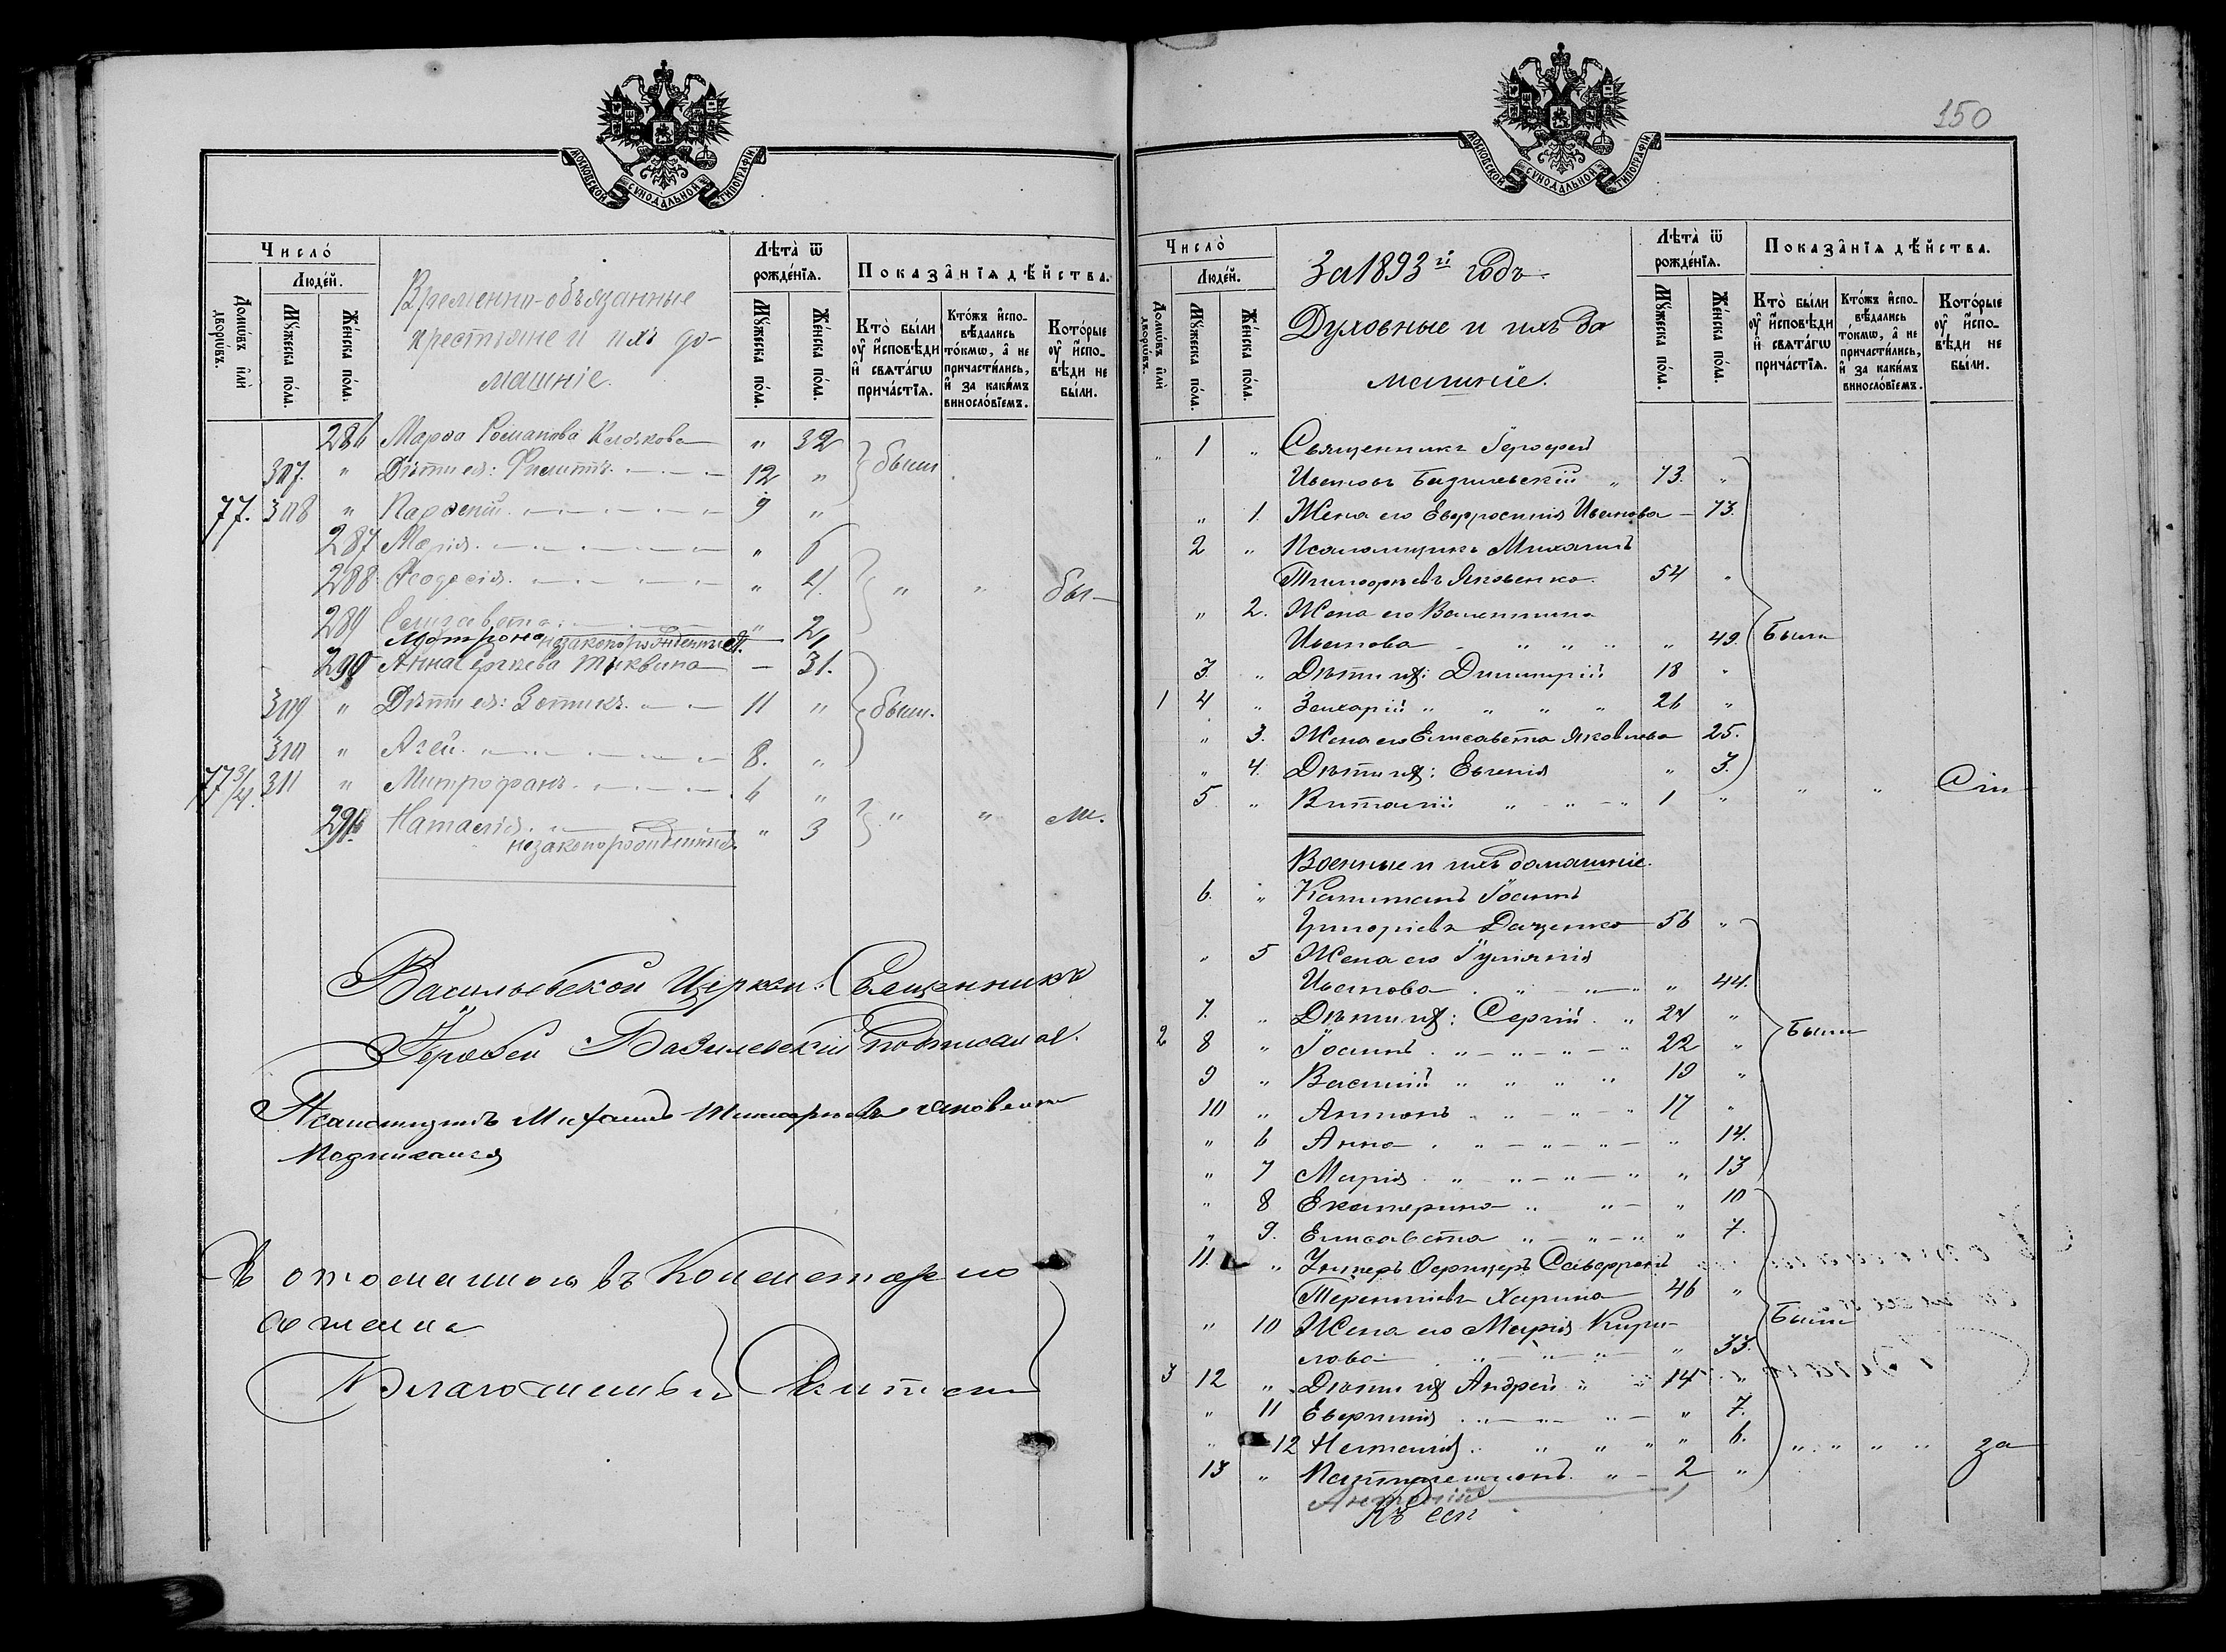 МОСКОВСКОЙ СУНОДАЛЬНОЙ ТИПОГРАФІИ
Число
Людей.
Домωвъ или дворωвъ.
Мужеска пола.
Женска пола.
Временно-обязанные
крестьяне и ихъ до-
машніе.
Лѣта ѿ рожденїя.
Мужеска пола.
Женска пола.
Показанїя дѣйства.
Кто были оу исповѣди и святагω причастїя.
Ктожъ исповѣдались токмω, а не причастились, и за какимъ винословїемъ.
Которые оу исповѣди не были.
286 Марѳа Романова Клочкова " 32
307. " Дѣти ея: Филиппъ 12 " были
77. 308 " Парѳеній 9 "
287 Марія " 6
288 Ѳеодосія " 4. " "
289 Елисавета " 2
Матрона незаконорожденныя. 1
290 Анна Сергѣева Тыквина — 31.
309 " Дѣти ея: Зотикъ 11 " были.
310 " Агей 8. "
77 3/4. 311 " Митрофанъ 6 "
291. Наталія " 3 " "
незаконорожденныя.
Васильевской Церкви: Священникъ
Іероѳей Базилевскій подписался.
Псаломщикъ Михаилъ Тимоѳеевъ Яковенко
Подписался
Благочинный
150
МОСКОВСКОЙ СУНОДАЛЬНОЙ ТИПОГРАФІИ
Число
Людей.
Домωвъ или дворωвъ.
Мужеска пола.
Женска пола.
За 1893й годъ.
Духовные и ихъ до
машніе.
Лѣта ѿ рожденїя.
Мужеска пола.
Женска пола.
Показанїя дѣйства.
Кто были оу исповѣди и святагω причастїя.
Ктожъ исповѣдались токмω, а не причастились, и за какимъ винословїемъ.
Которые оу исповѣди не были.
" 1 " Священникъ Іероѳей
Ивановъ Базилевскій " 73. "
" 1. Жена его Евфросинія Иванова — 73.
2 " Псаломщикъ Михаилъ
Тимоѳеевъ Яковенко 54 "
" 2. Жена его Валентина
Иванова " 49. были
3. " Дѣти ихъ: Димитрій 18 "
1 4 " Захарій " 26 "
" 3. Жена его Елисавета Яковлева 25.
" 4. Дѣти ихъ: Евгенія " 3.
5 " Виталій 1 " " "
Военные и ихъ домашніе.
6. " Капитанъ Іоаннъ
Григоріевъ Даценко 56 "
" 5 Жена его Іуліанія
Иванова " 44.
7. " Дѣти ихъ: Сергій 24 "
2 8 " Іоаннъ 22 " были
9 " Василій 19 "
10 " Антонъ 17 "
" 6 Анна " 14.
" 7 Марія " 13
" 8 Екатерина " 10
" 9. Елисавета " 7.
11. " Унтеръ Офицеръ
Терентіевъ Харина 46 "
" 10 Жена его Марія Кири-
лова " 33. были
3 12 " Дѣти ихъ Андрей 14 "
" 11 Евфимія " 7.
" 12 Наталія " 6. за
13 " Пантелеимонъ 2 "